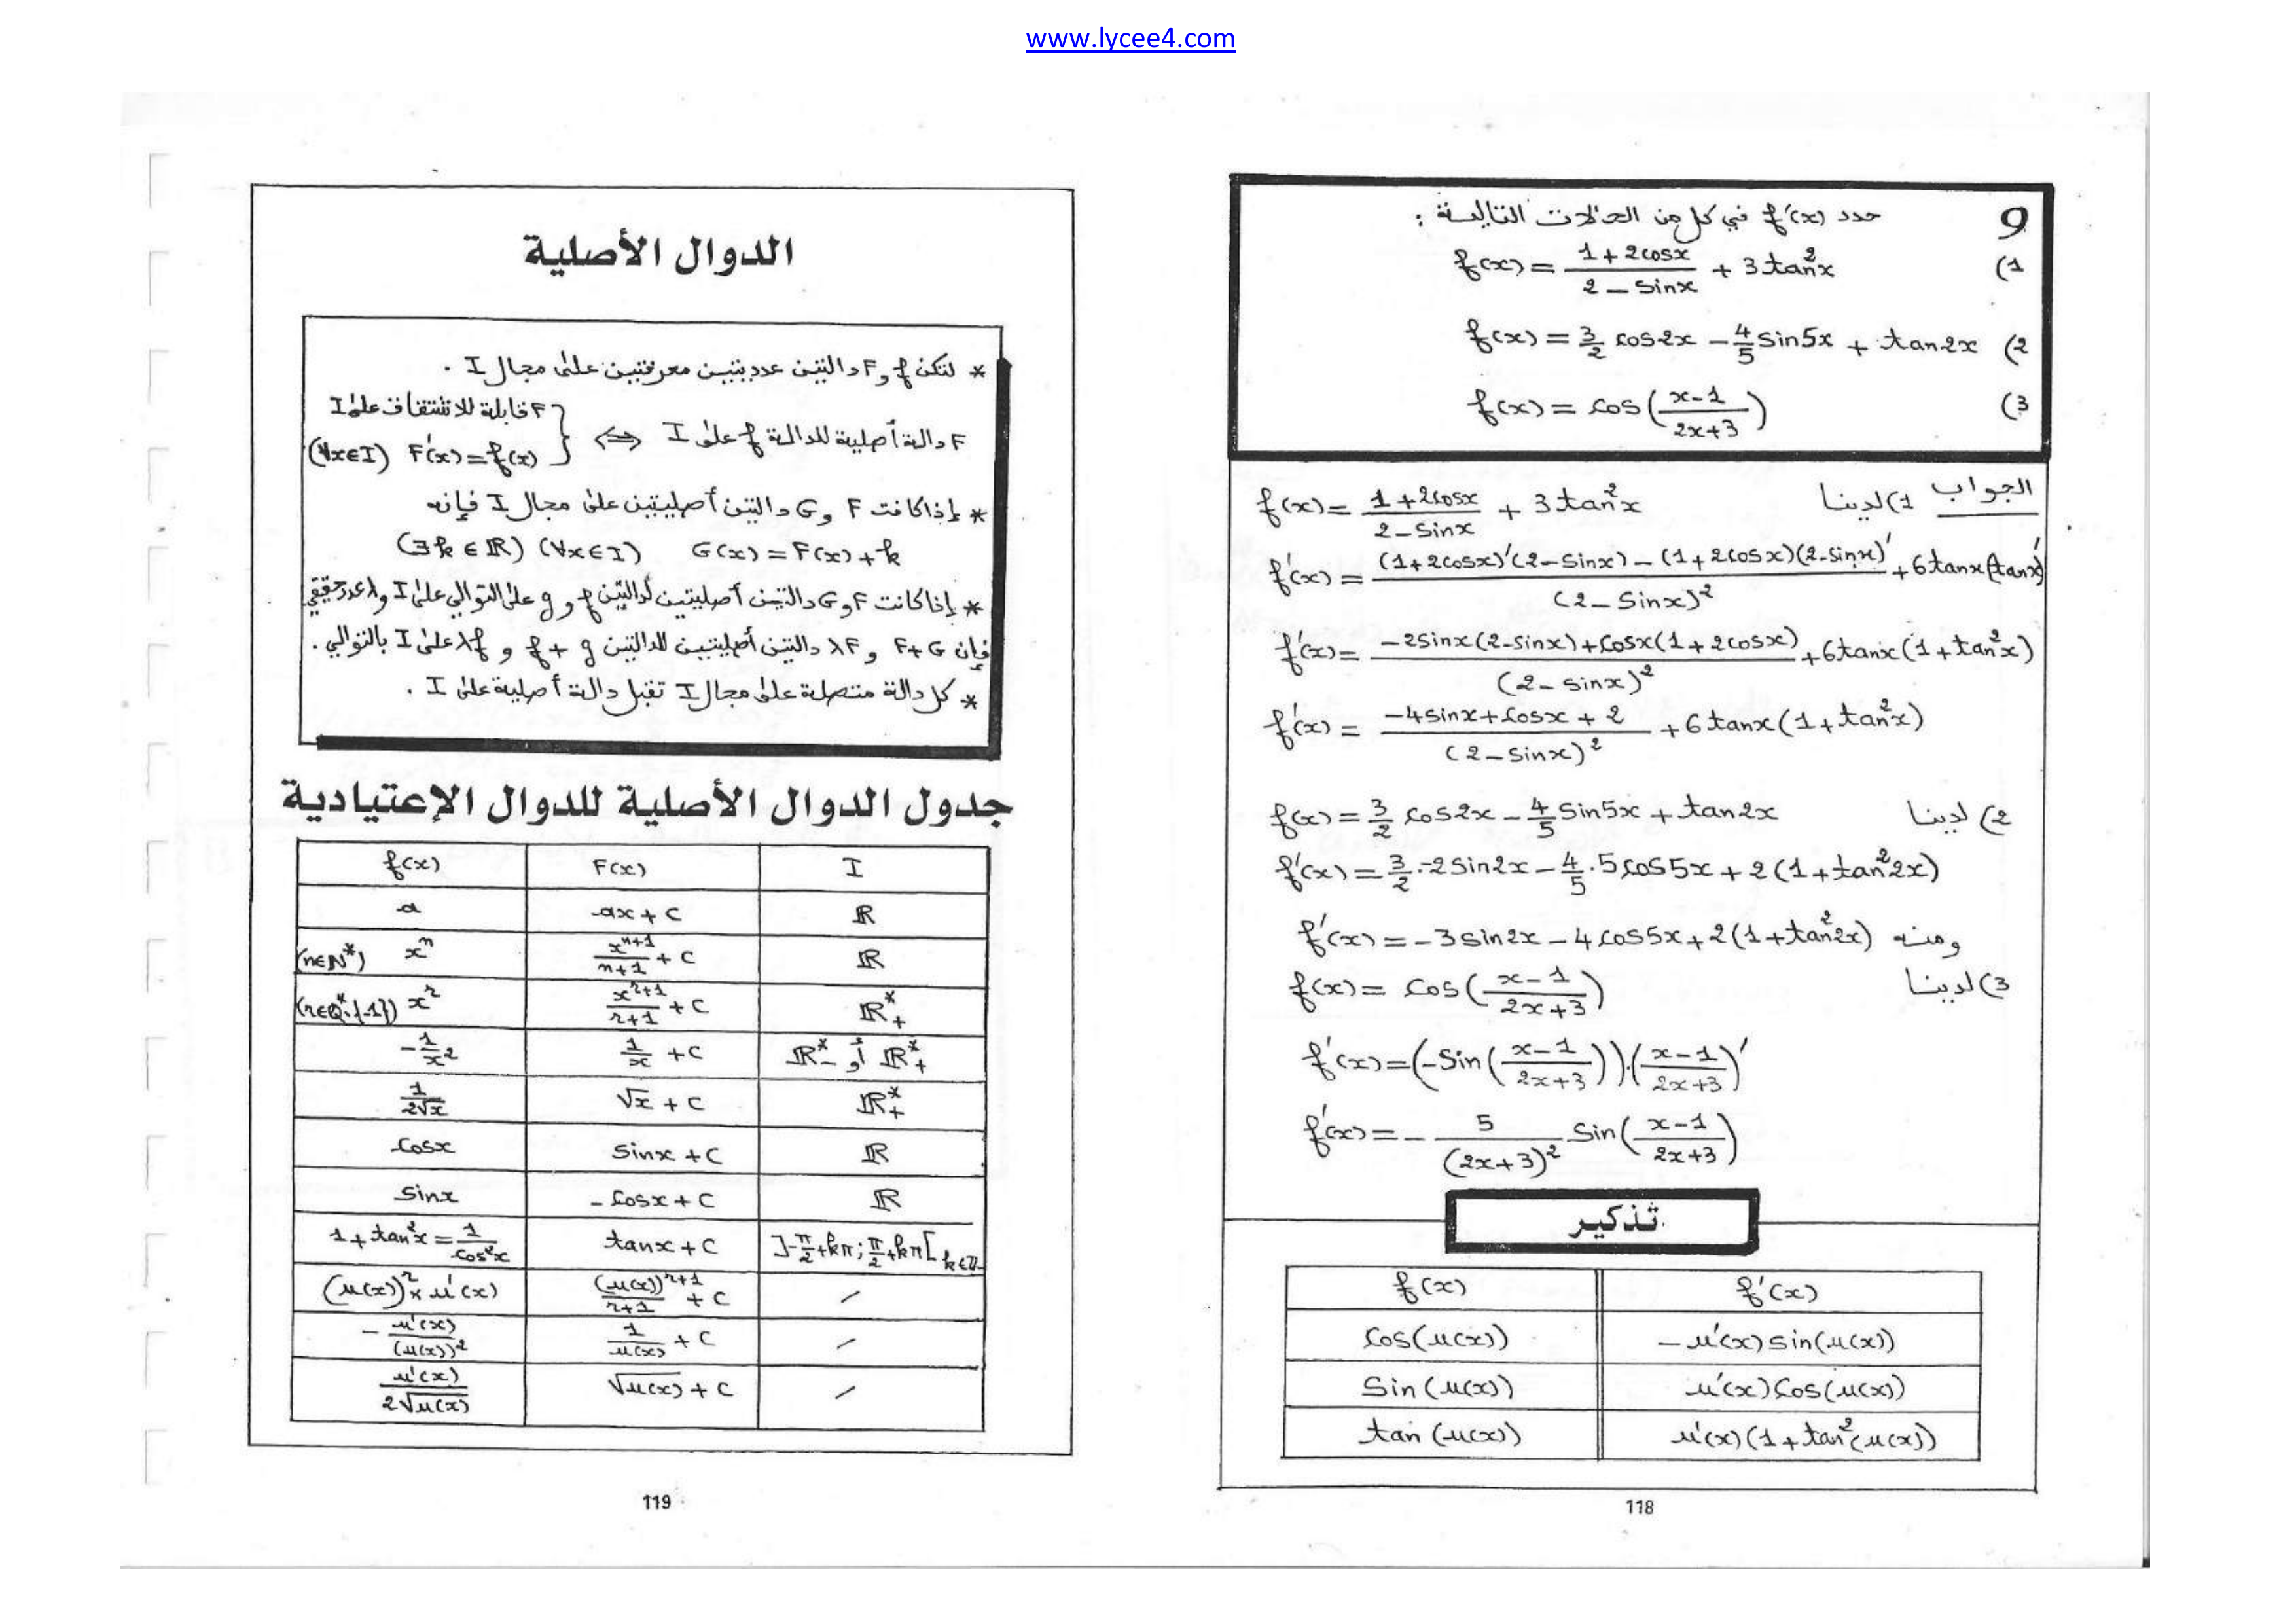 www.lycee4.com
9 حدد f'(x) في كل من الحالات التالية :
1) f(x) = (1+2cosx)/(2-sinx) + 3tan²x
2) f(x) = 3/2 cos2x - 4/5 sin5x + tan2x
3) f(x) = cos((x-1)/(2x+3))
الجواب 1) لدينا f(x) = (1+2cosx)/(2-sinx) + 3tan²x
f'(x) = ((1+2cosx)'(2-sinx) - (1+2cosx)(2-sinx)')/(2-sinx)² + 6tanx(tanx)'
f'(x) = (-2sinx(2-sinx)+cosx(1+2cosx))/(2-sinx)² + 6tanx(1+tan²x)
f'(x) = (-4sinx+cosx+2)/(2-sinx)² + 6tanx(1+tan²x)
2) لدينا f(x) = 3/2 cos2x - 4/5 sin5x + tan2x
f'(x) = 3/2 . -2sin2x - 4/5 . 5cos5x + 2(1+tan²2x)
ومنه f'(x) = -3sin2x - 4cos5x + 2(1+tan²2x)
3) لدينا f(x) = cos((x-1)/(2x+3))
f'(x) = (-sin((x-1)/(2x+3))).((x-1)/(2x+3))'
f'(x) = - 5/(2x+3)² sin((x-1)/(2x+3))
تذكير
f(x) f'(x)
cos(u(x)) -u'(x)sin(u(x))
sin(u(x)) u'(x)cos(u(x))
tan(u(x)) u'(x)(1+tan²(u(x))
118
الدوال الأصلية
* لتكن f و F دالتين عدديتين معرفتين على مجال I .
F دالة أصلية للدالة f على I ⟺ { F قابلة للاشتقاق على I
(∀x∈I) F'(x)=f(x)
* إذا كانت F و G دالتين أصليتين على مجال I فإنه
(∃k∈ℝ) (∀x∈I) G(x) = F(x)+k
* إذا كانت F و G دالتين أصليتين لدالتين f و g على التوالي على I و λ عدد حقيقي
فإن F+G و λF دالتين أصليتين للدالتين f+g و λf على I بالتوالي .
* كل دالة متصلة على مجال I تقبل دالة أصلية على I .
جدول الدوال الأصلية للدوال الإعتيادية
f(x) F(x) I
a ax+c ℝ
(n∈ℕ*) xⁿ xⁿ⁺¹/(n+1) + c ℝ
(r∈ℚ*-{-1}) x^r x^(r+1)/(r+1) + c ℝ*₊
-1/x² 1/x + c ℝ*₊ أو ℝ*₋
1/(2√x) √x + c ℝ*₊
cosx sinx + c ℝ
sinx -cosx + c ℝ
1+tan²x = 1/cos²x tanx + c ]-π/2+kπ ; π/2+kπ[ k∈ℤ
(u(x))^r × u'(x) (u(x))^(r+1)/(r+1) + c /
-u'(x)/(u(x))² 1/u(x) + c /
u'(x)/(2√u(x)) √u(x) + c /
119